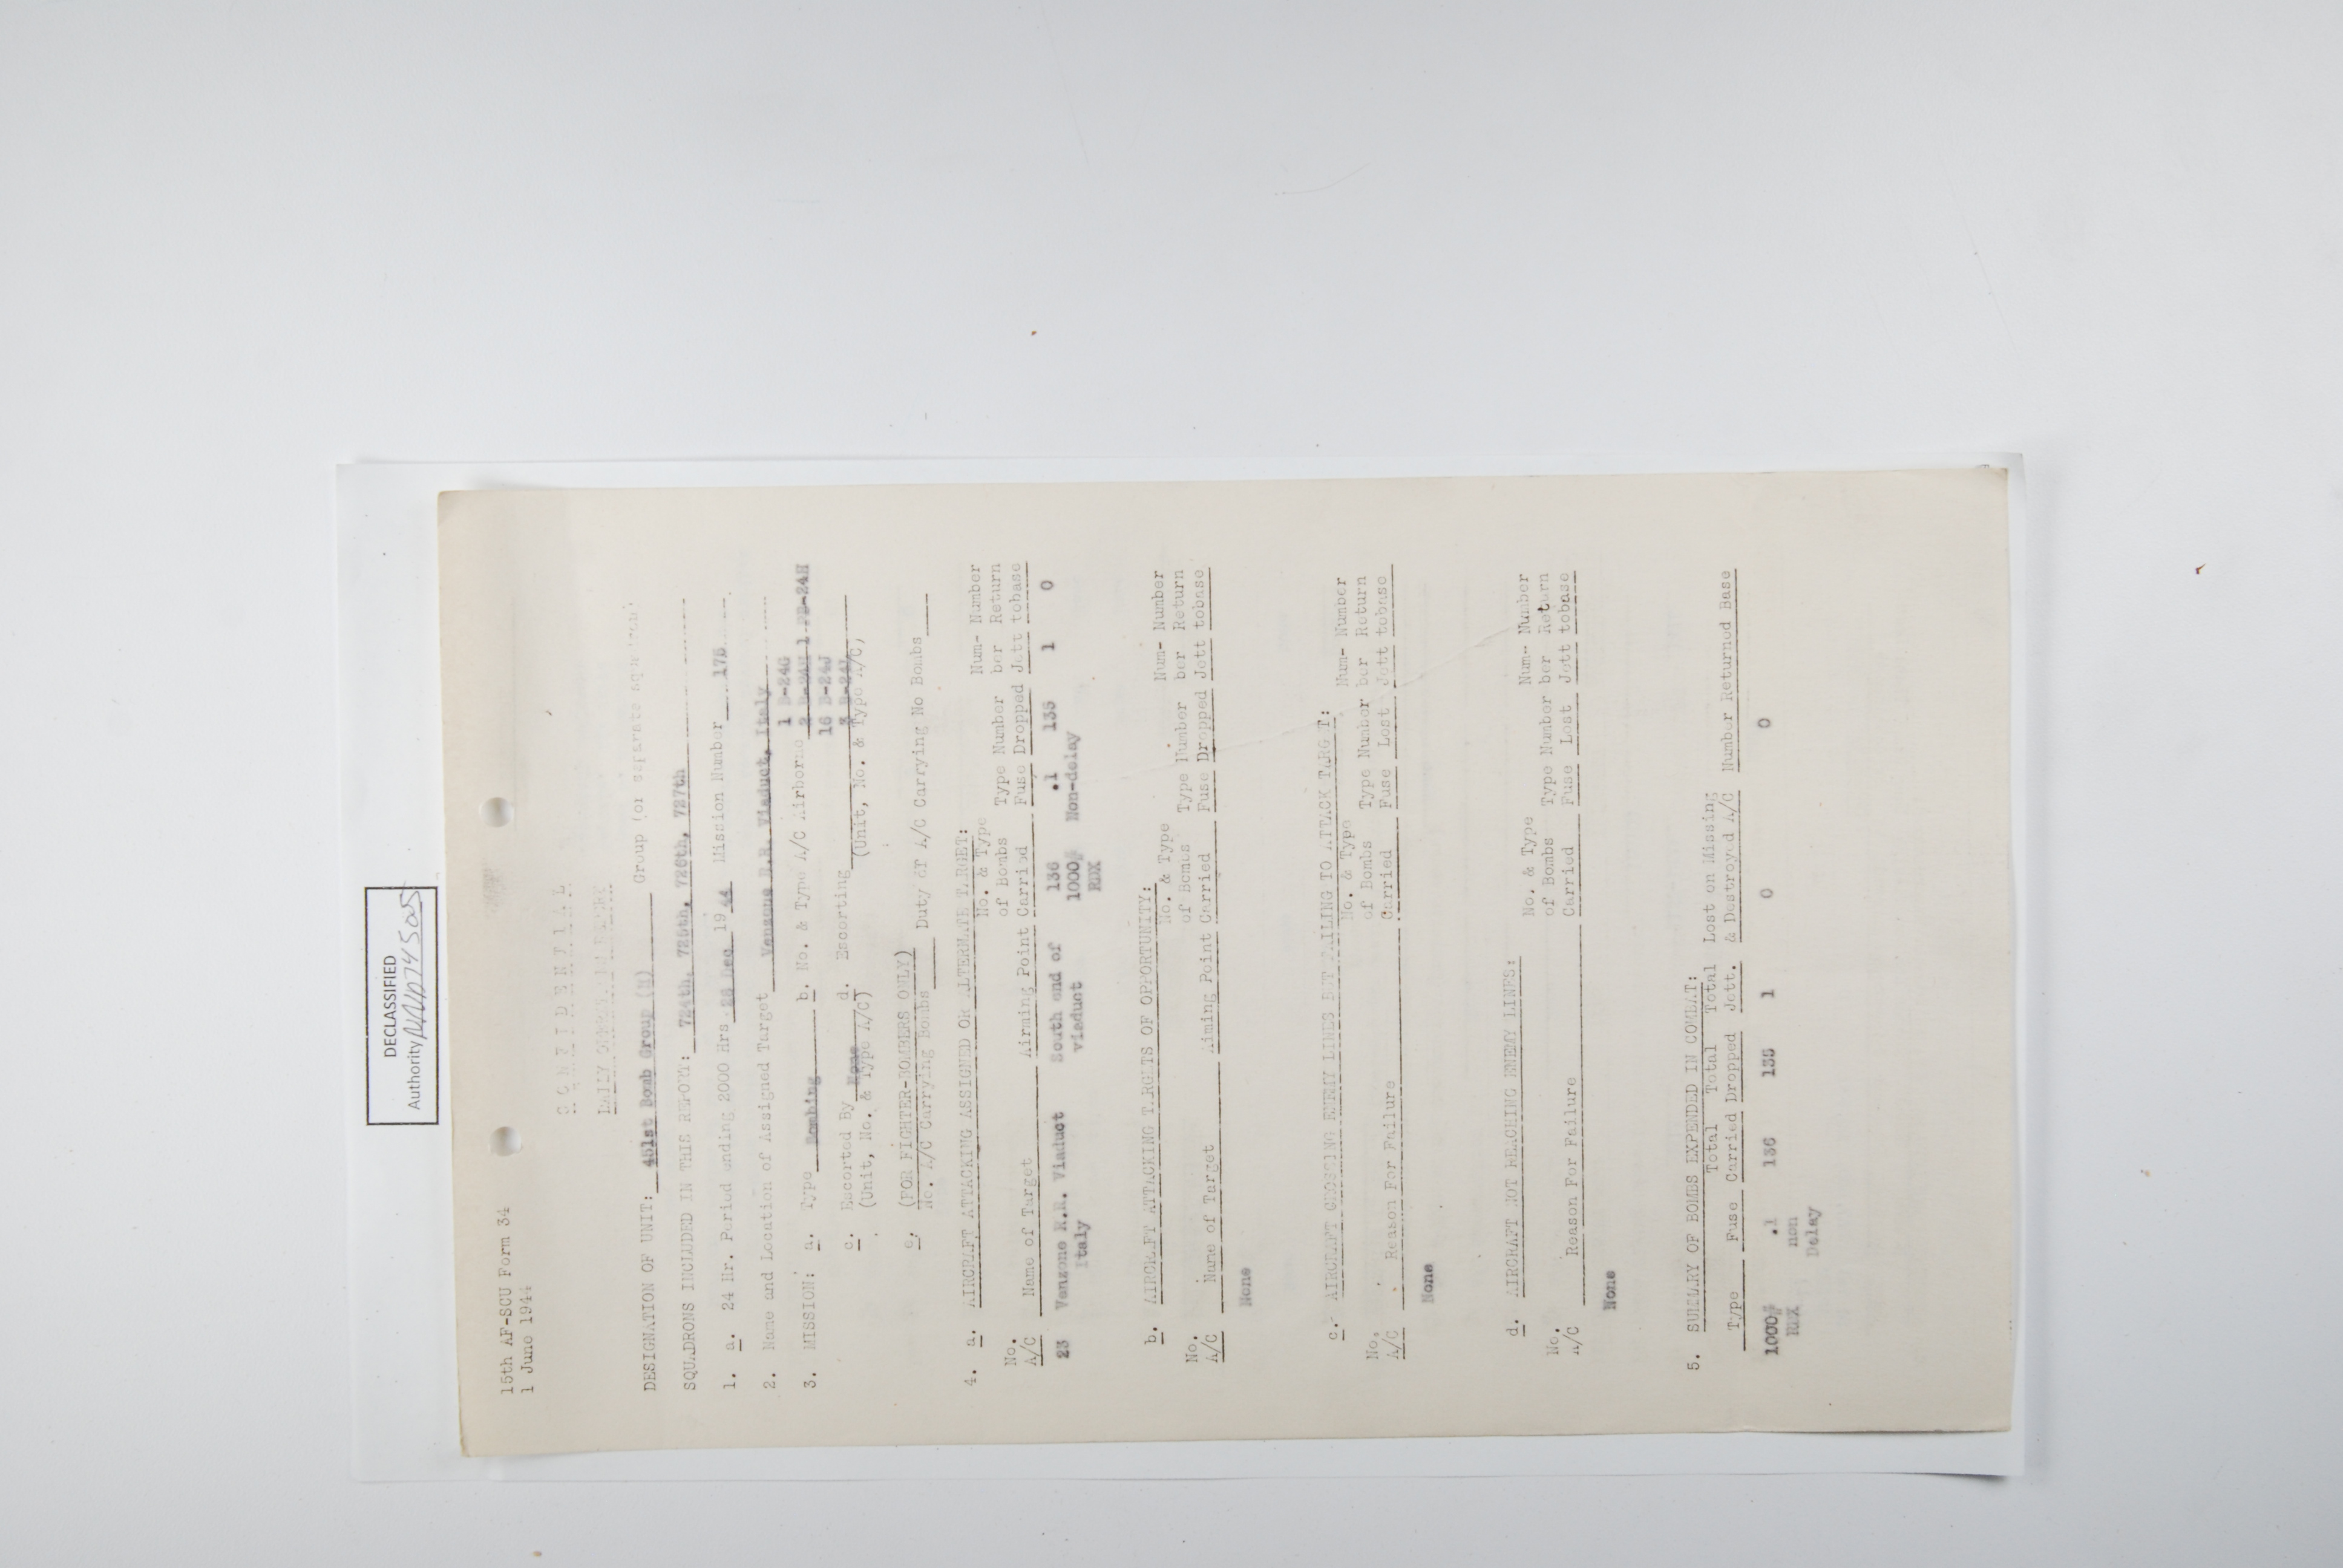 DECLASSIFIED
Authority NND745005
15th AF-SCU Form 34
1 June 1944
CONFIDENTIAL
DAILY OPERATIONS REPORT
DESIGNATION OF UNIT: 451st Bomb Group (H) Group (or separate squadron)
SQUADRONS INCLUDED IN THIS REPORT: 724th, 725th, 726th, 727th
1. a. 24 Hr. Period ending 2000 Hrs Dec 1944 Mission Number 175
2. Name and Location of Assigned Target Venzone R.R. Viaduct, Italy
1 B-24G
3. MISSION: a. Type Bombing b. No. & Type A/C Airborne 1 B-24H
16 B-24J
3 B-24L
c. Escorted By None d. Escorting
(Unit, No. & Type A/C) (Unit, No. & Type A/C)
e. (FOR FIGHTER-BOMBERS ONLY)
No. A/C Carrying Bombs Duty of A/C Carrying No Bombs
4. a. AIRCRAFT ATTACKING ASSIGNED OR ALTERNATE TARGET:
No. & Type Num- Number
No. of Bombs Type Number ber Return
A/C Name of Target Airming Point Carried Fuse Dropped Jett tobase
23 Venzone R.R. Viaduct South end of 136 .1 135 1 0
Italy viaduct 1000# Non-delay
RDX
b. AIRCRAFT ATTACKING TARGETS OF OPPORTUNITY:
No. & Type Num- Number
No. of Bombs Type Number ber Return
A/C Name of Target Aiming Point Carried Fuse Dropped Jett tobase
None
c. AIRCRAFT CROSSING ENEMY LINES BUT FAILING TO ATTACK TARGET:
No. & Type Num- Number
No. of Bombs Type Number ber Return
A/C Reason For Failure Carried Fuse Lost Jett tobase
None
d. AIRCRAFT NOT REACHING ENEMY LINES:
No. & Type Num- Number
No. of Bombs Type Number ber Return
A/C Reason For Failure Carried Fuse Lost Jett tobase
None
5. SUMMARY OF BOMBS EXPENDED IN COMBAT:
Total Total Total Lost on Missing
Type Fuse Carried Dropped Jett. & Destroyed A/C Number Returned Base
1000# .1 136 135 1 0 0
RDX non
Delay